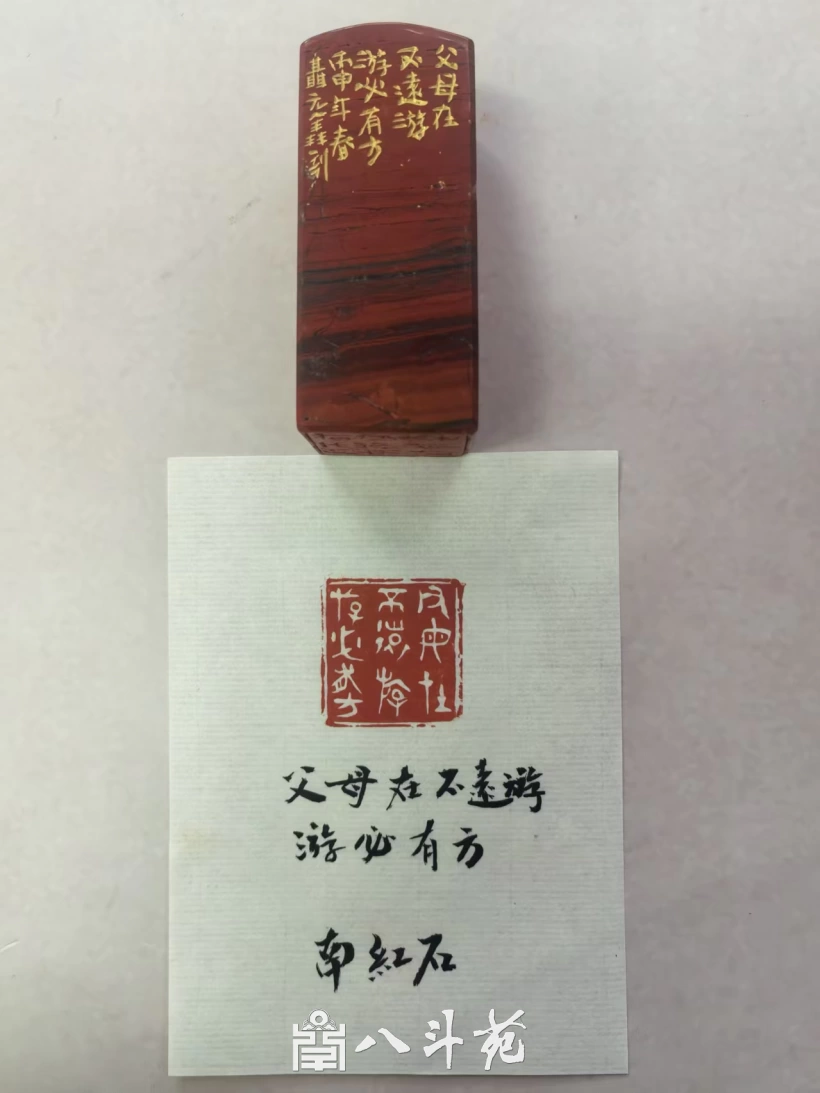 父母在
不遠游
游必有方
丙申年春
聶元刻
父母在
不遠游
游必有方
父母在不遠游
游必有方
南紅石
八斗苑